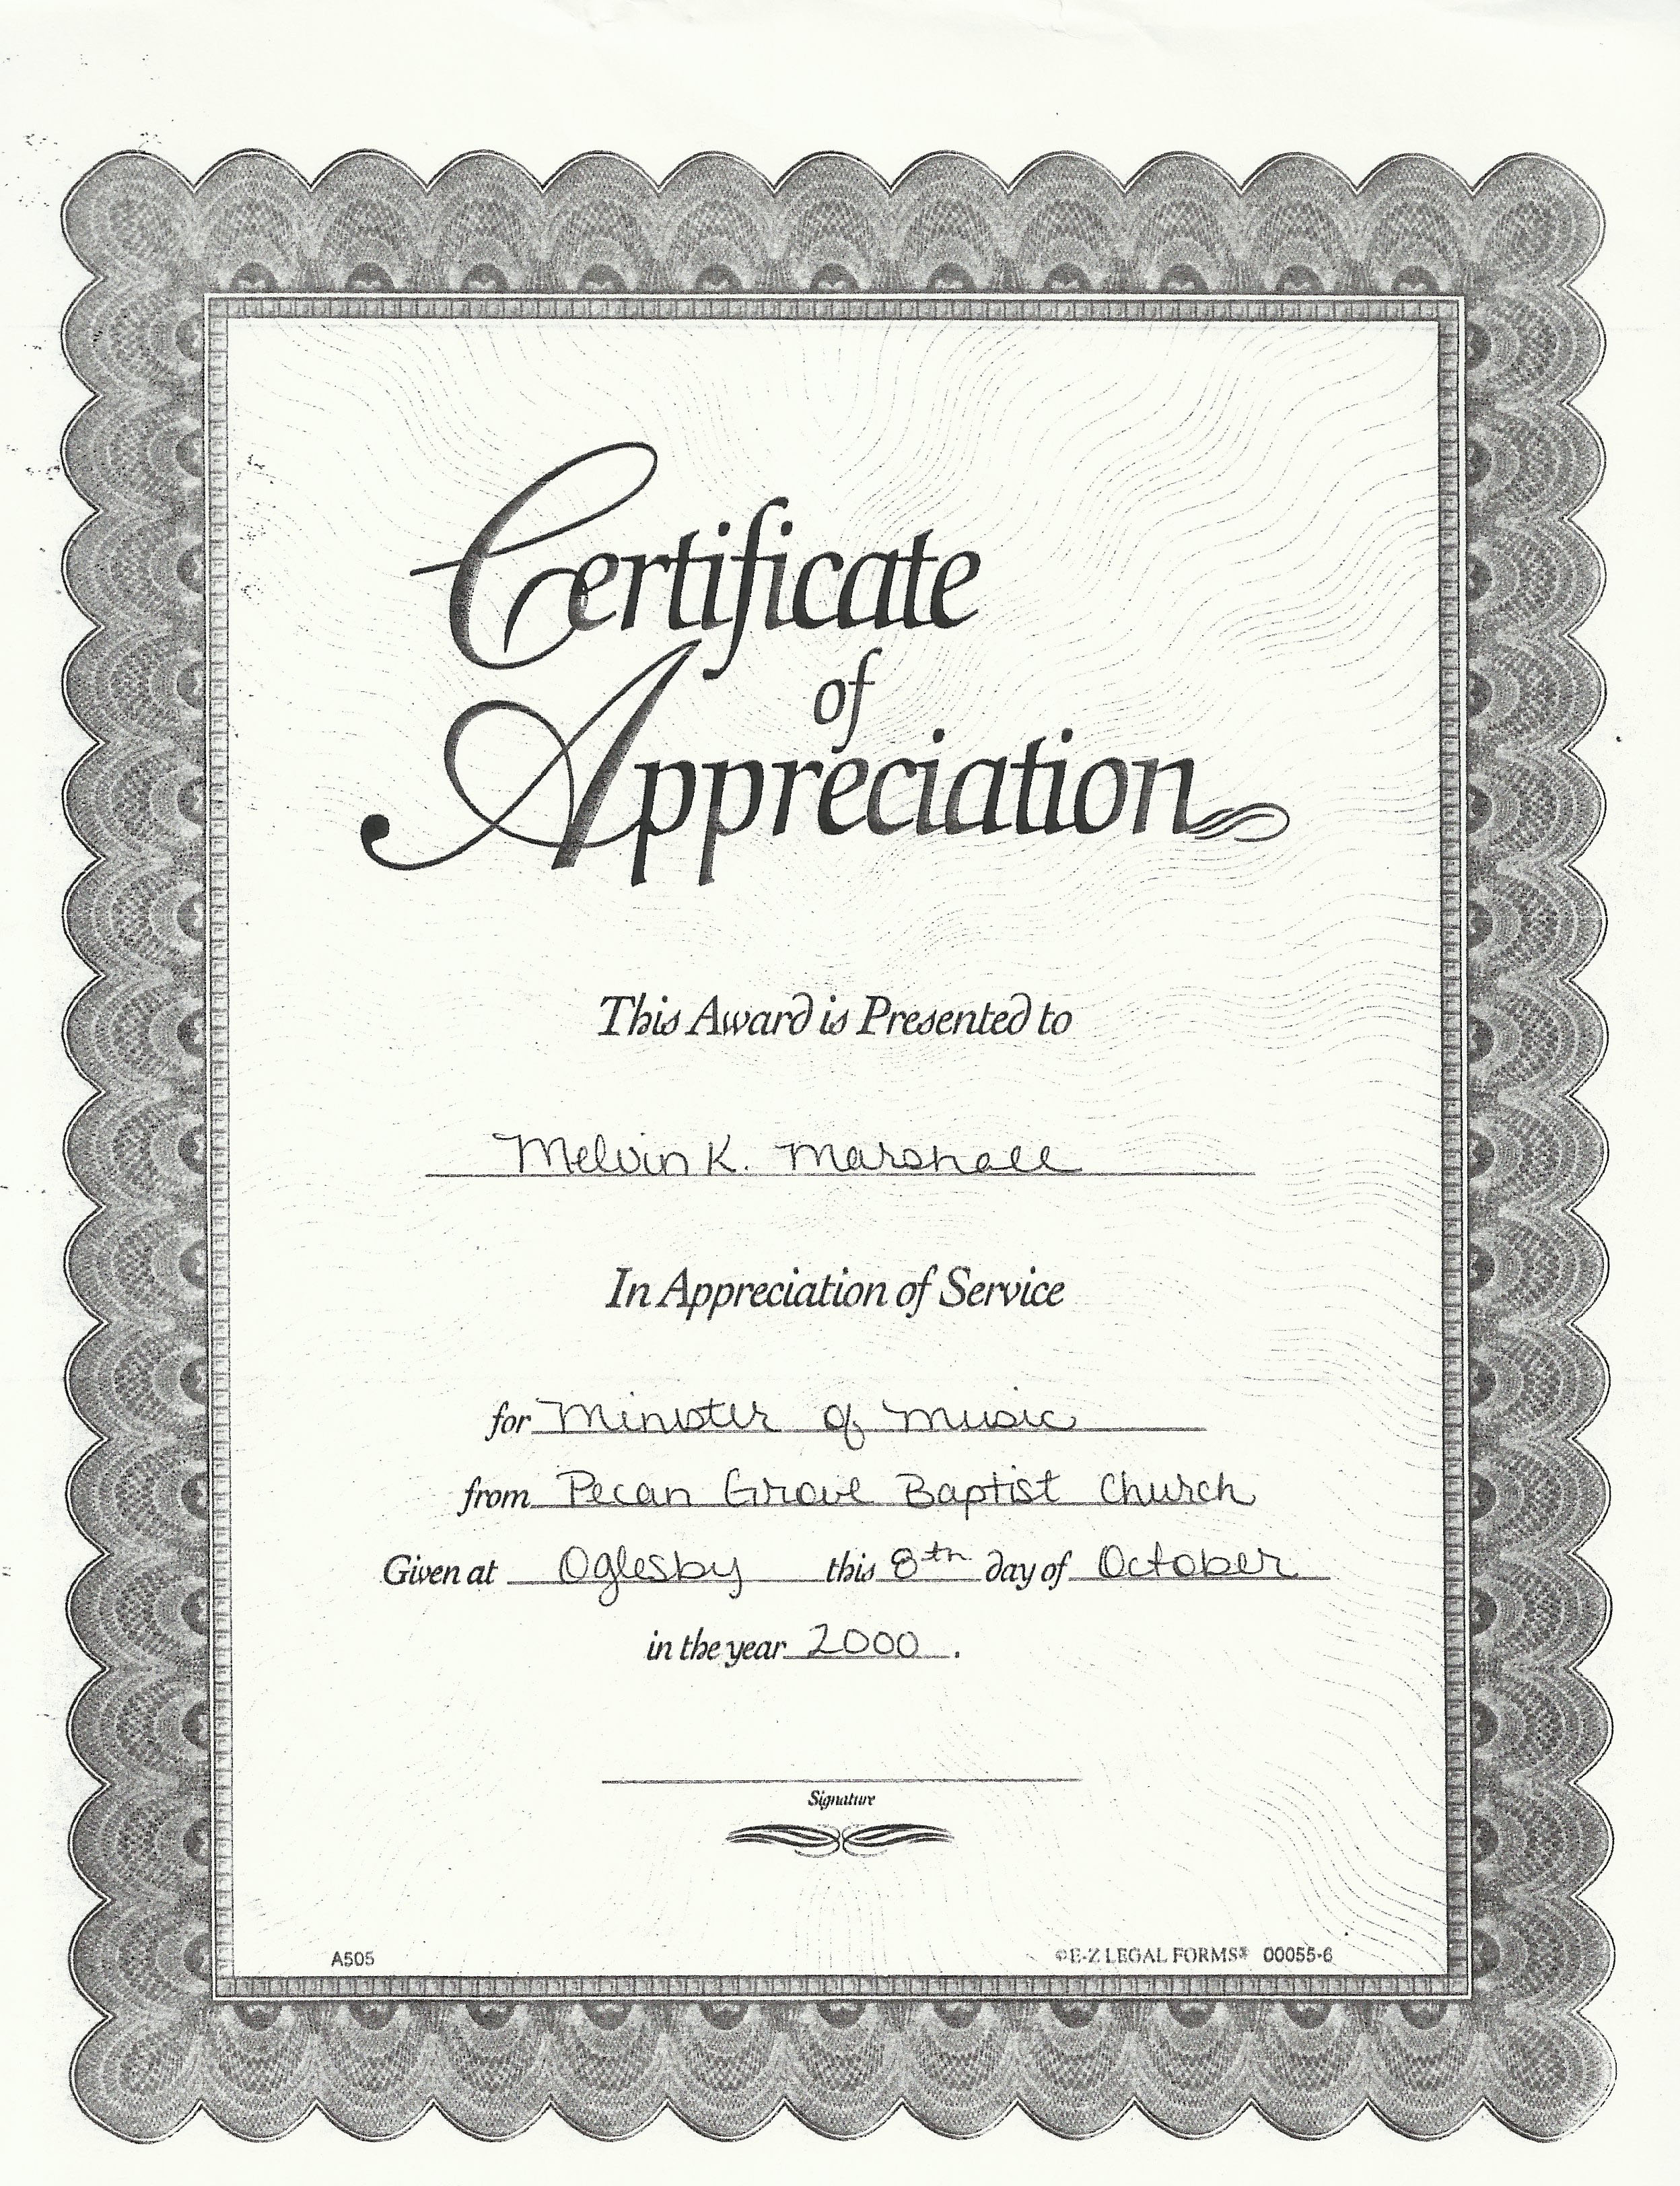 Certificate
of
Appreciation
This Award is Presented to
Melvin K. Marshall
In Appreciation of Service
for Minister of Music
from Pecan Grove Baptist Church
Given at Oglesby this 8th day of October
in the year 2000.
Signature
A505 ©E-Z LEGAL FORMS® 00055-6